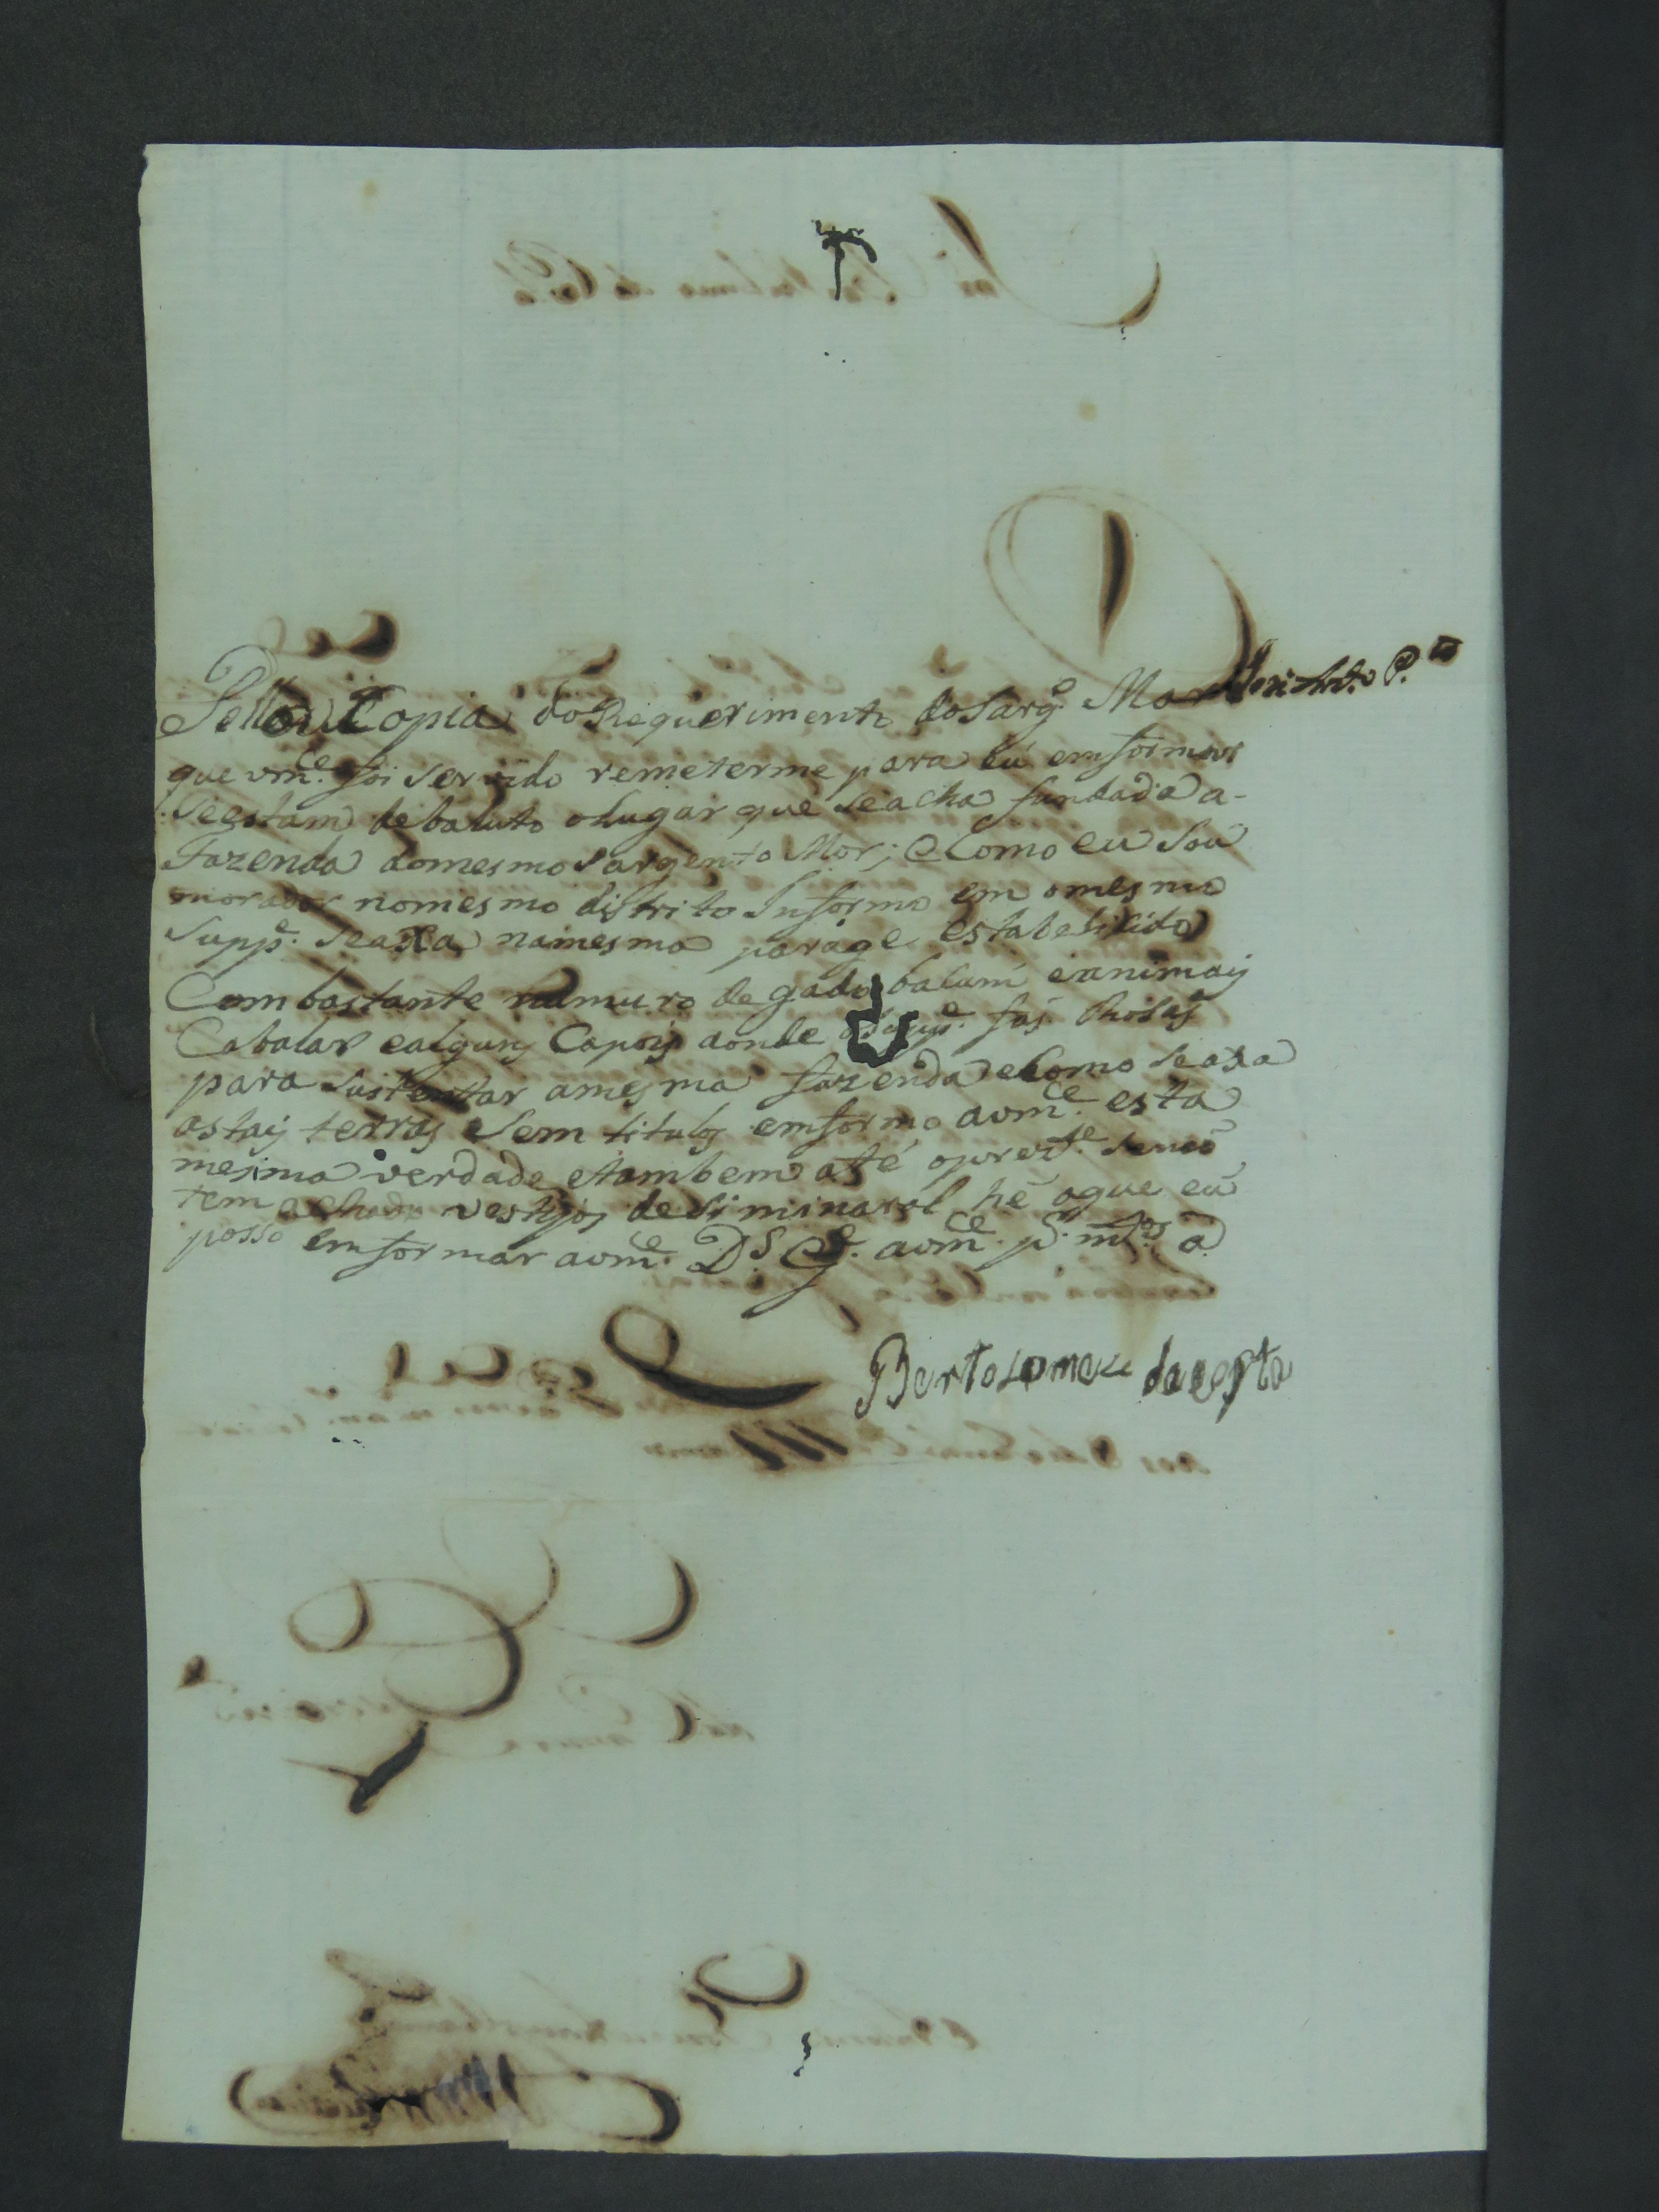 Pella Copia do Requerimento do Sarg.º Mor José Ant.º P.ra
que vm.ce foi servido remeterme para eú emformar
Seestam debaluto olugar que Seacha fundada a-
Fazenda domesmo Sargento Mor; eComo eu Sou
morador nomesmo distrito Informo em omesmo
Supp.e Seaxa namesma parage estabelicido
Combastante numuro de gado bacum eanimaij
Cabalar ealgunj Capois donde oSupp.e fás Rosas
para Sustentar amesma fazenda eComo seaxa
astaij terras Sem titulos emformo avm.ce esta
mesma verdade etambem até oprez.te senaõ
tem achado vestijos de Siminaral hé oque eú
posso emformar avm.ce D.s G.e avm.ce p.r m.tos a.
Bertolomeu dacosta